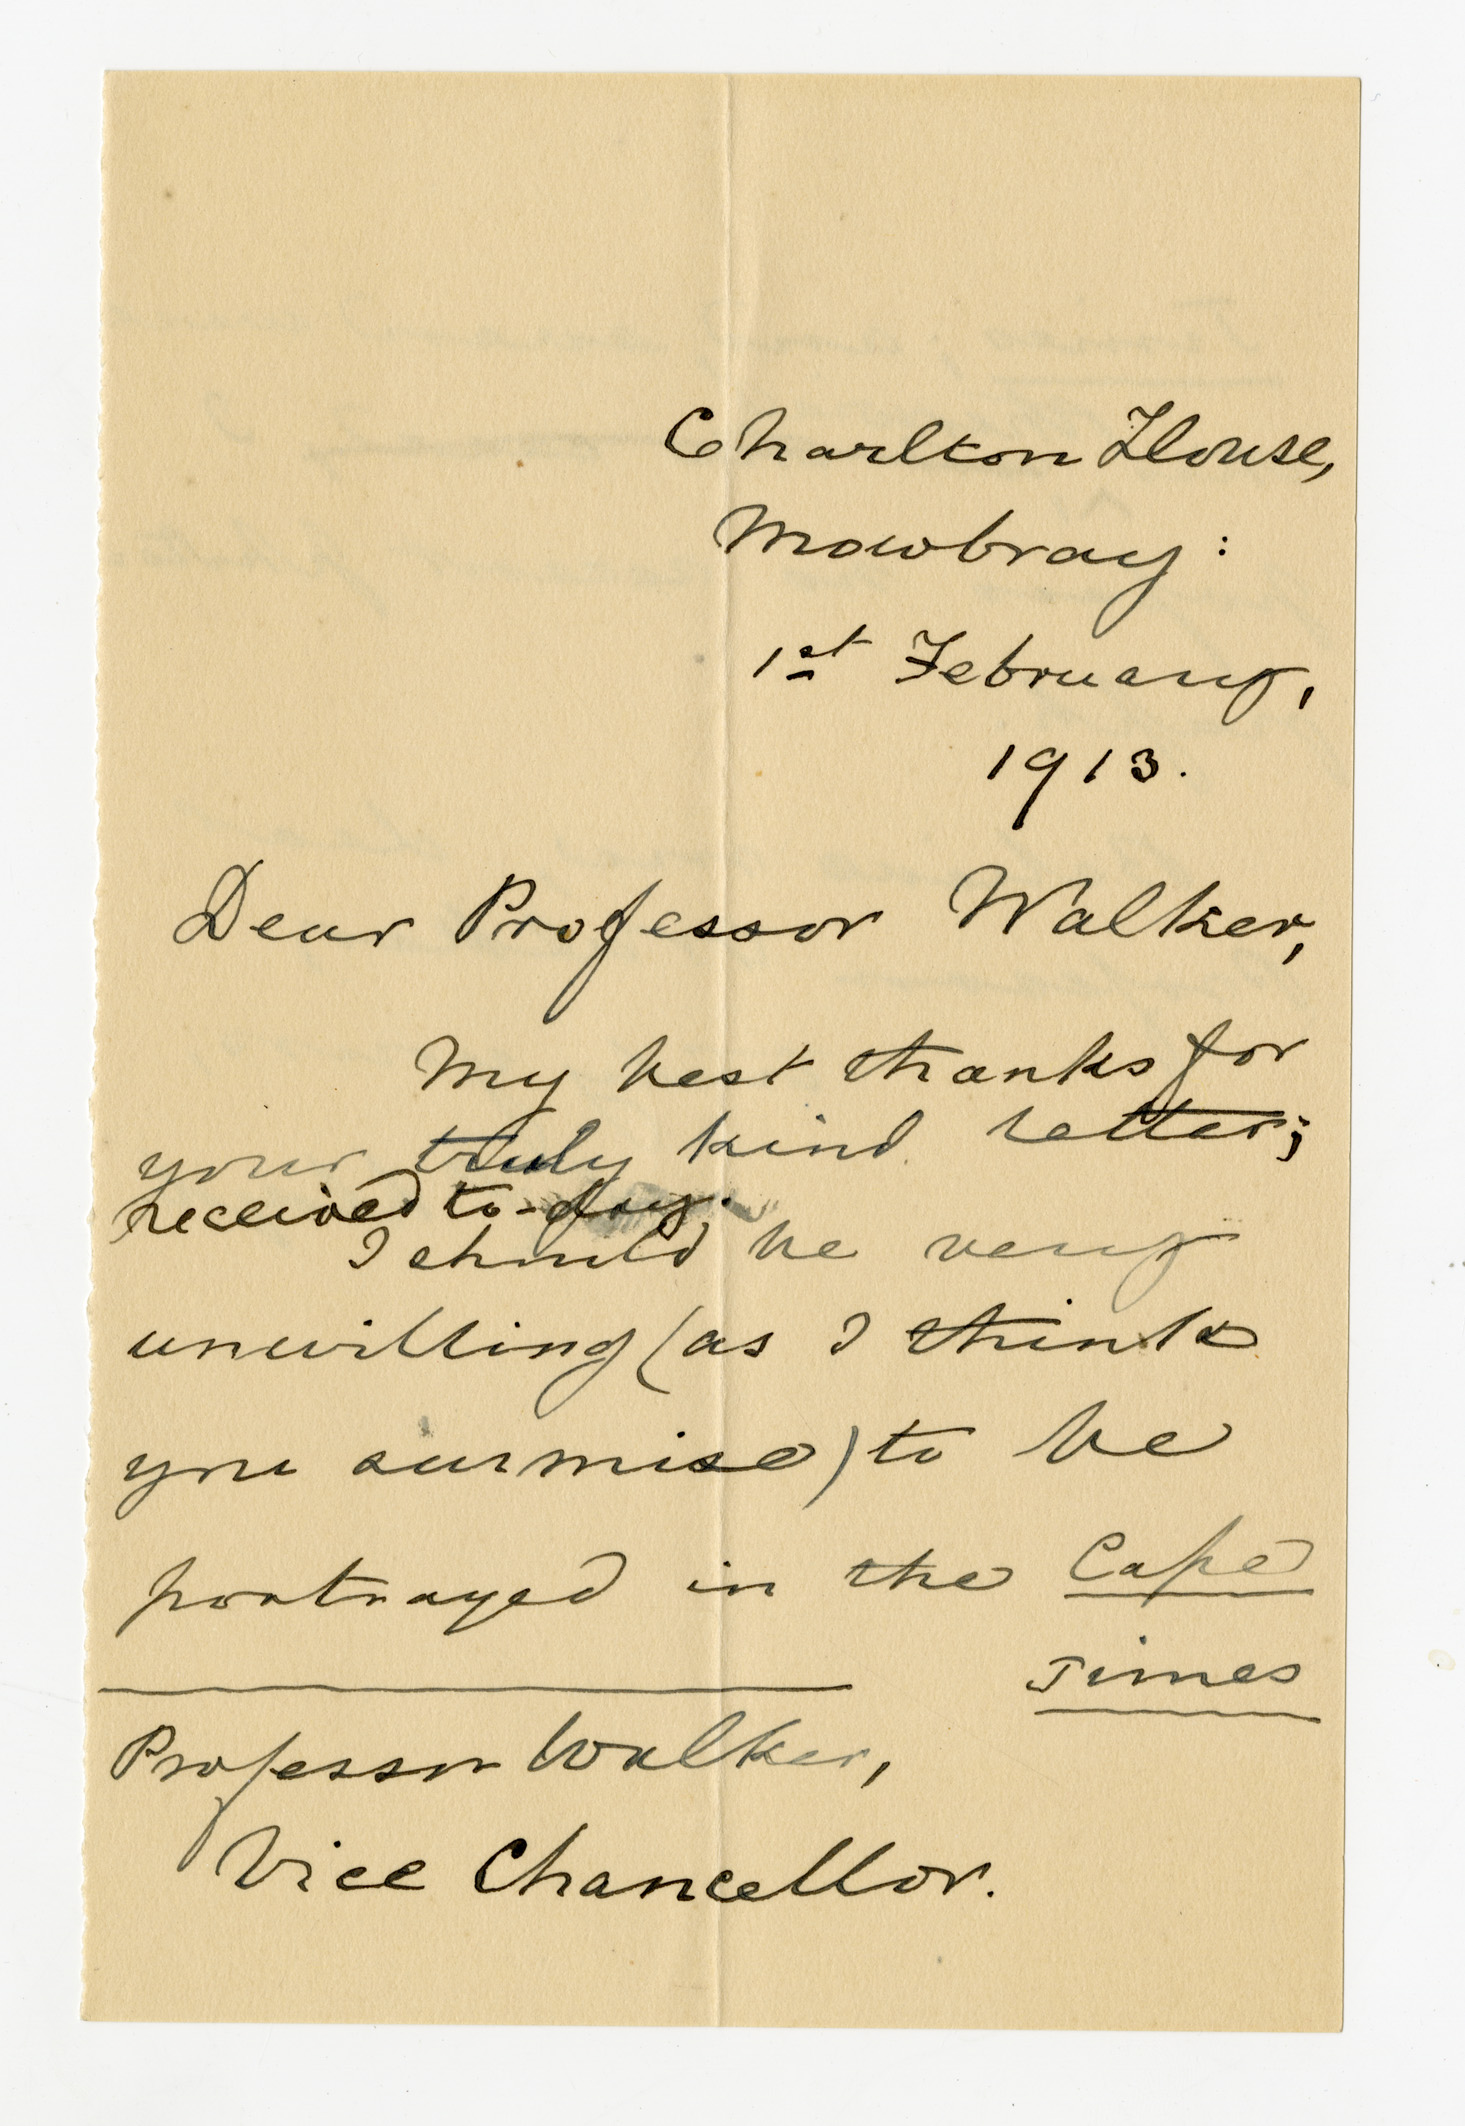 Charlton House,
Mowbray:
1st February,
1913.
Dear Professor Walker,
My best thanks for
your truly kind letter;
received to-day.
I should be very
unwilling (as I think
you surmise) to be
portrayed in the Cape
Times
Professor Walker,
Vice Chancellor.